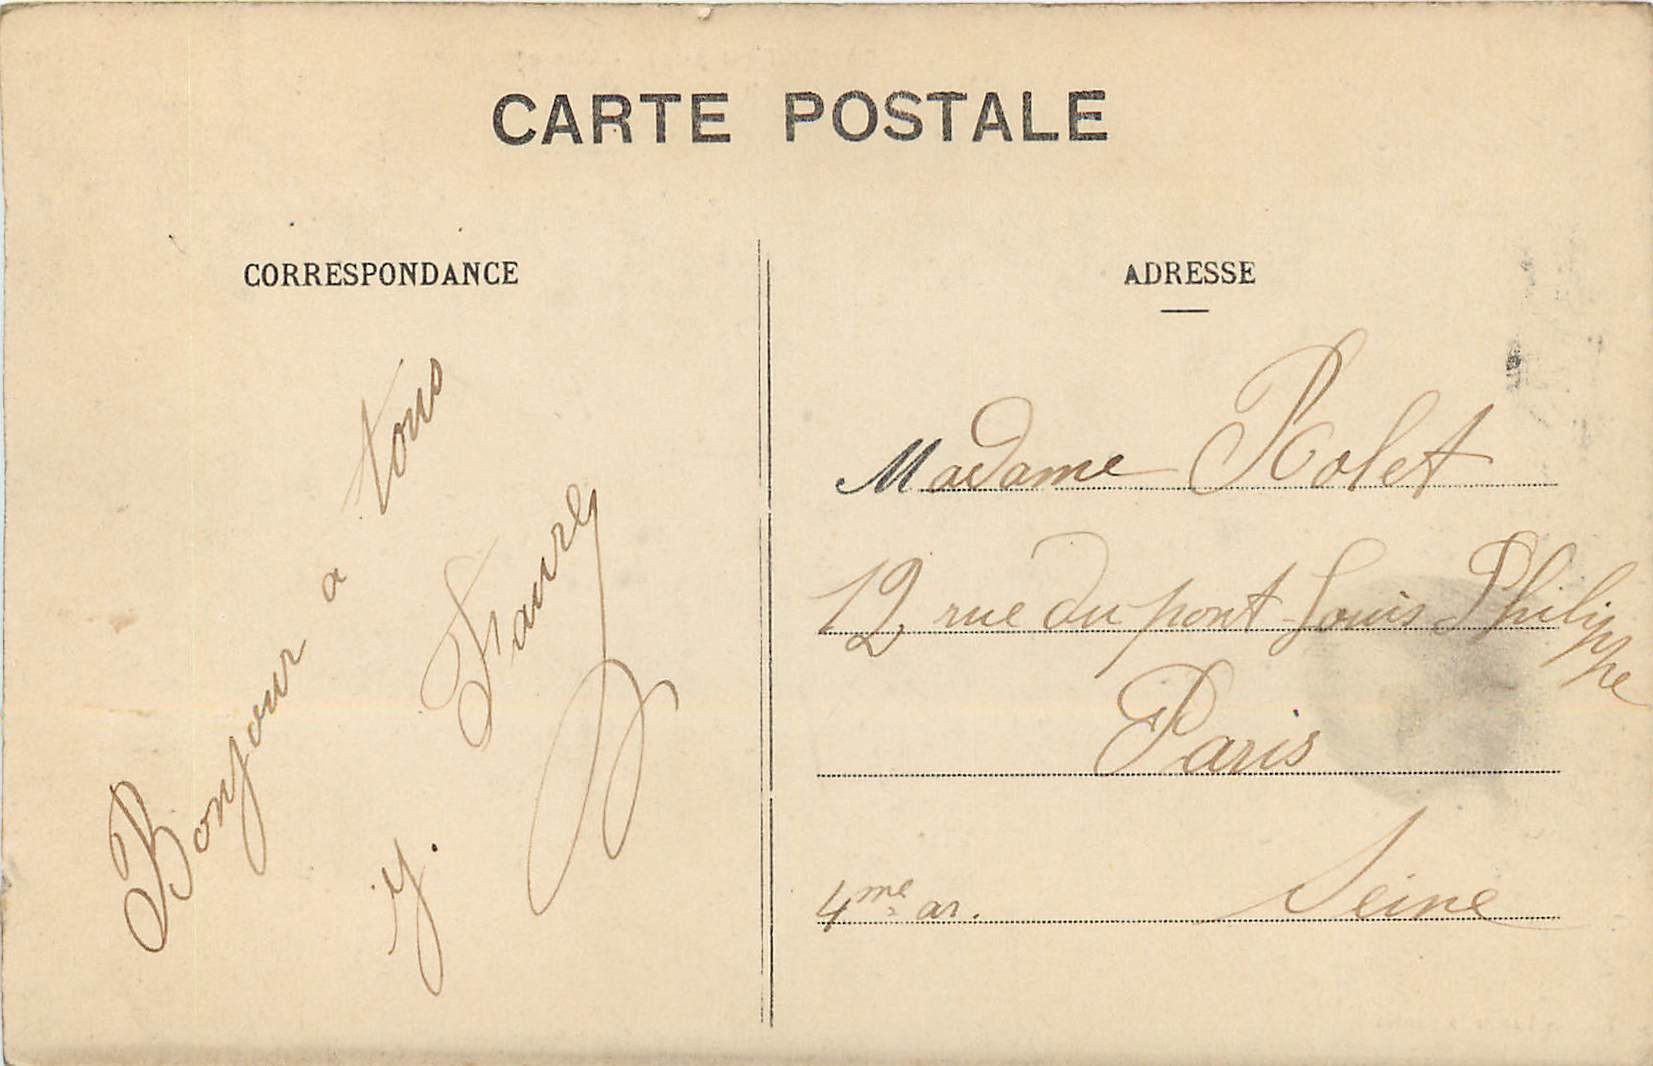 CARTE POSTALE
CORRESPONDANCE
Bonjour a tous
y. Faure
ADRESSE
Madame Rolet
12 rue du pont Louis Philippe
Paris
4me ar. Seine